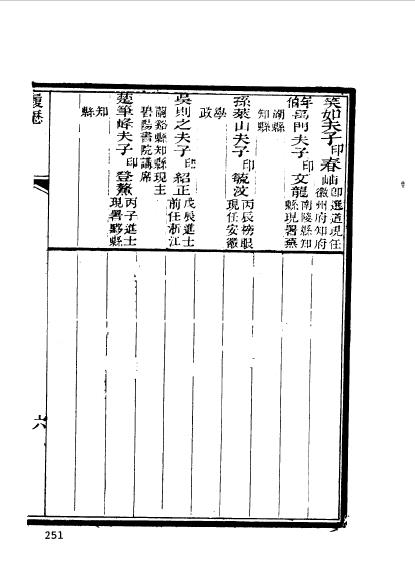 笑如夫子印春岫即選道現任徽州府知府
禹門夫子印文龍南陵縣知縣現署蕪
湖縣知縣
孫萊山夫子印毓汶丙辰榜眼現任安徽
學政
吳則之夫子印紹正戊辰進士前任浙江
蘭谿縣知縣現主碧陽書院講席
楚筆峰夫子印登鰲丙子進士現署黟縣
知縣
履歷
六
251